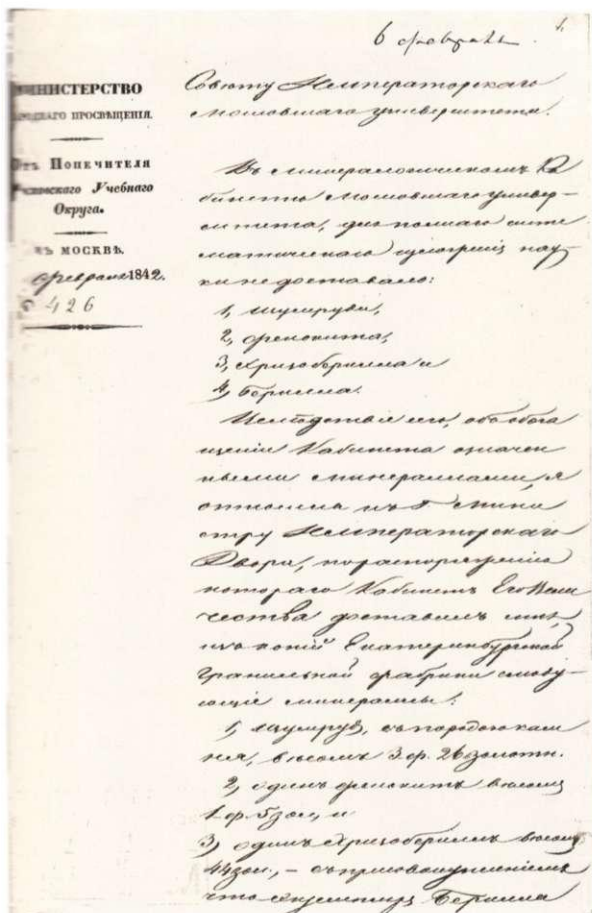 6 февраля.
МИНИСТЕРСТВО
НАРОДНАГО ПРОСВѢЩЕНІЯ.
Отъ Попечителя
Московскаго Учебнаго
Округа.
ВЪ МОСКВѢ.
февраля 1842.
426
Совѣту Императорскаго
Московскаго университета.
Въ Минералогическомъ Ка
бинетѣ Московскаго универ-
ситета, для полнаго систе
матическаго нау-
ки недоставало:
1, изумруда,
2, фенокита,
3, хризоберилла и
4, Берилла.
Вслѣдствіе сего, объ обога
щеніи Кабинета означен
ными минералами, я
къ Г. Мини
стру Императорскаго
Двора, по распоряженію
котораго Кабинетъ Его Вели
чества доставилъ мнѣ,
изъ Екатеринбургской
Гранильной фабрики слѣду-
ющіе минералы:
1, изумрудъ, съ породою кам
ня, вѣсомъ 3 ф. 26 золотн.
2, одинъ фенокитъ вѣсомъ
1 ф. 5 зол., и
3, одинъ хризобериллъ вѣсомъ
44 зол., – съ присовокупленіемъ
что Берилла